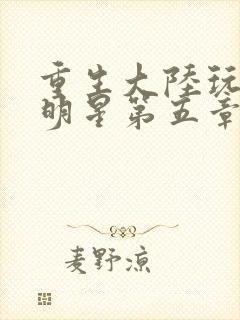 重生大陸玩
明星第五章
麦野凉